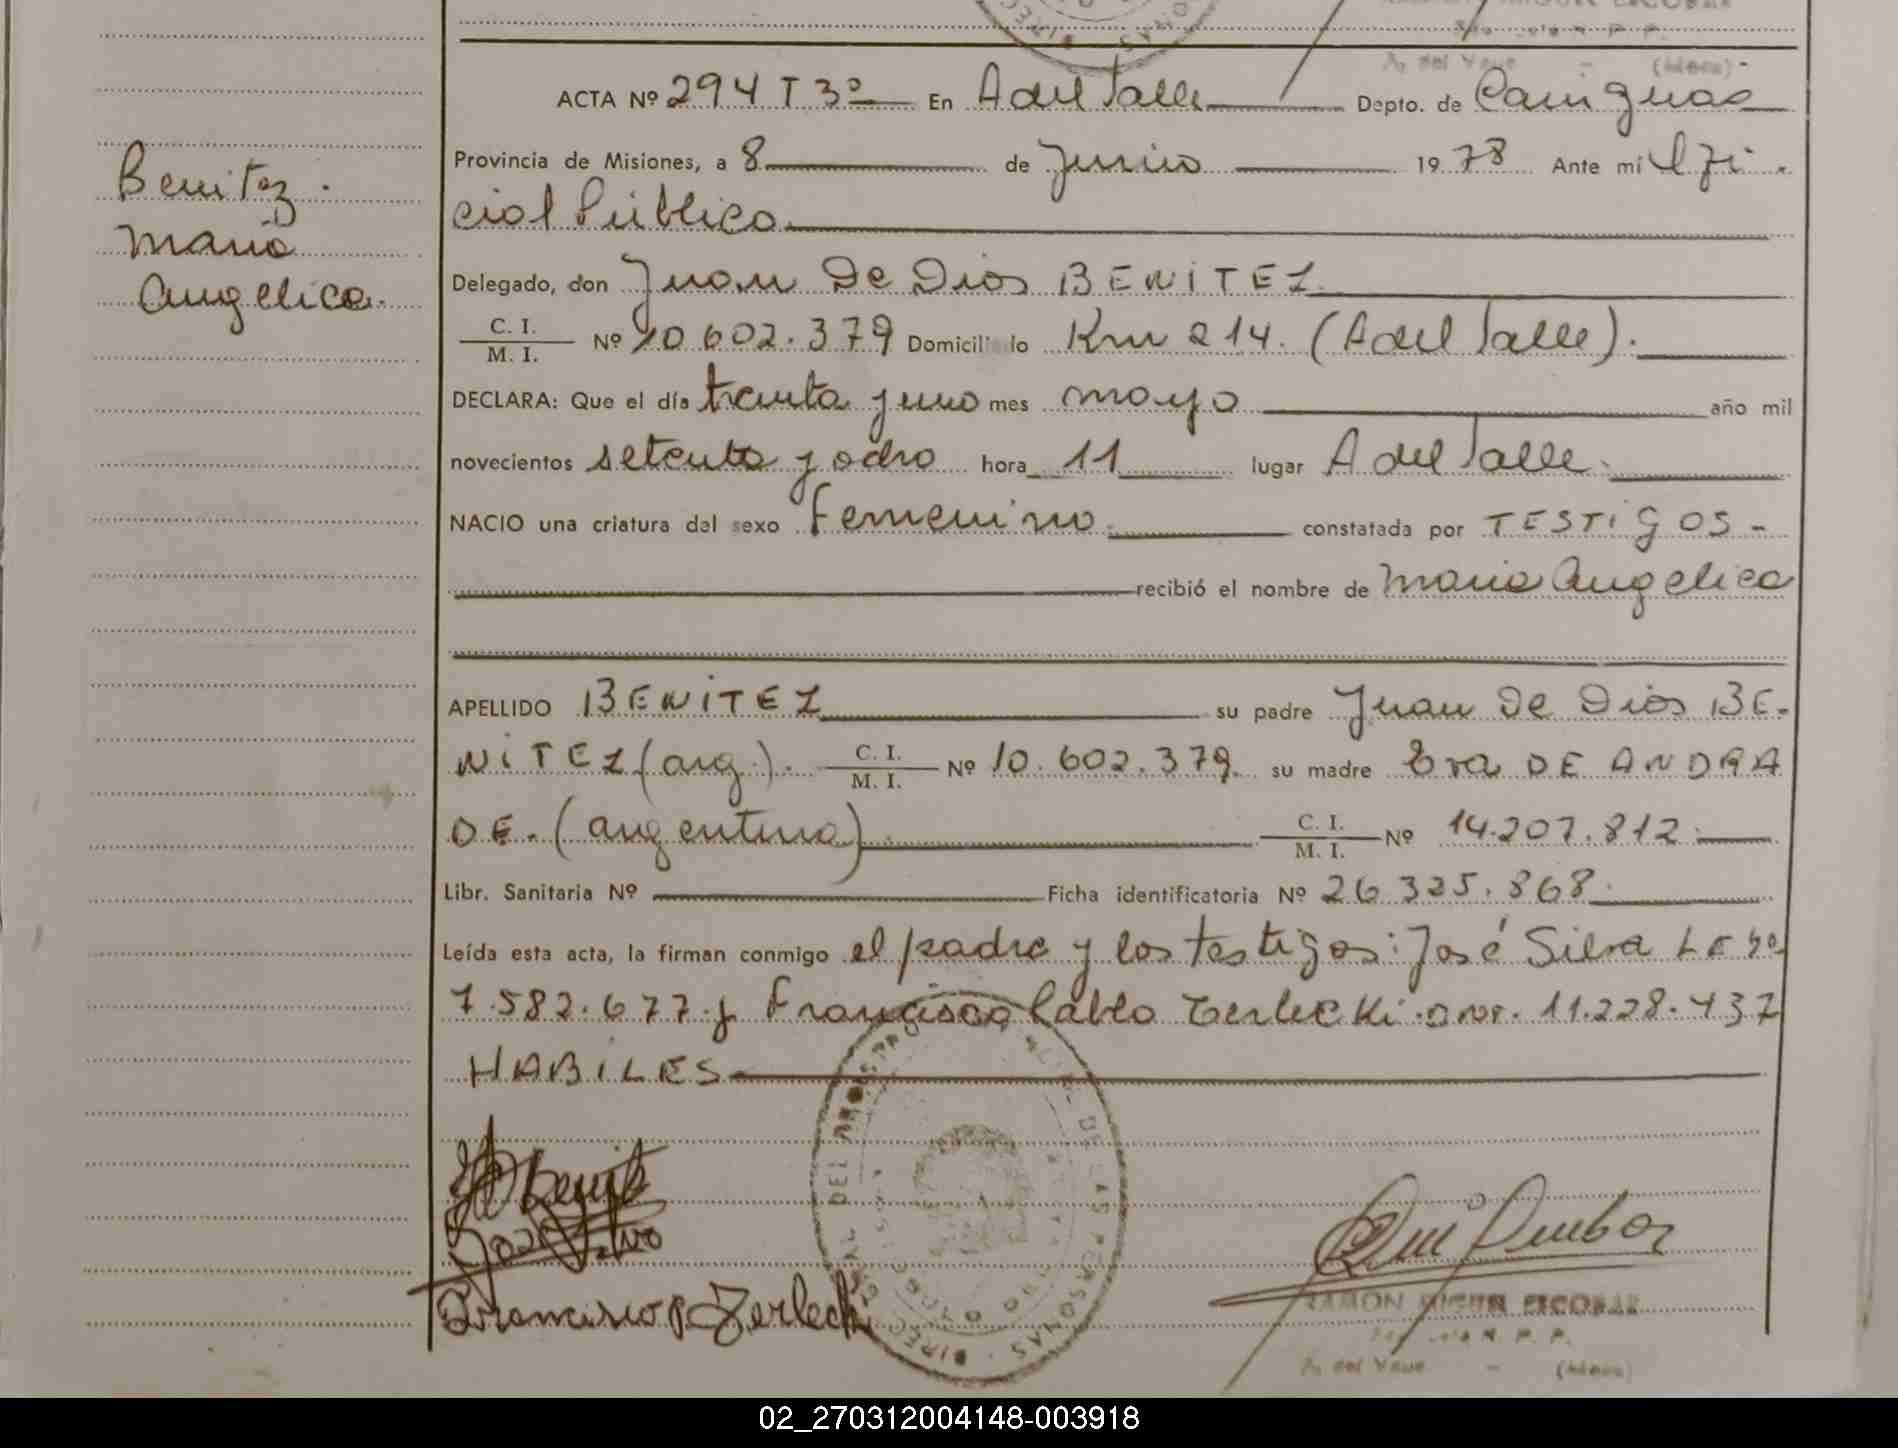 ACTA Nº 294 T 3º En A del Valle Depto. de Cainguas
Provincia de Misiones, a 8 de Junio 1978 Ante mí Ofi-
cial Público
Benitez.
Maria
Angelica.
Delegado, don Juan De Dios BENITEZ
C. I. / M. I. Nº 10.602.379 Domiciliado Km 214. (A del Valle).
DECLARA: Que el día treinta y uno mes mayo año mil
novecientos setenta y ocho hora 11 lugar A del Valle.
NACIO una criatura del sexo Femenino. constatada por TESTIGOS-
recibió el nombre de Maria Angelica
APELLIDO BENITEZ su padre Juan De Dios BE-
NITEZ (arg.). C. I. / M. I. Nº 10.602.379. su madre Eva DE ANDRA
DE. (argentina). C. I. / M. I. Nº 14.207.812.
Libr. Sanitaria Nº Ficha identificatoria Nº 26.325.868.
Leída esta acta, la firman conmigo el padre y los testigos: José Silva LE Nº
7.582.677. y Francisco Pablo Terlecki. DNI. 11.228.437
HABILES
Benitez
Jose Silva
Francisco P. Terlecki
RAMON MIGUEL ESCOBAR
A. del Valle - (Mnes)
02_270312004148-003918